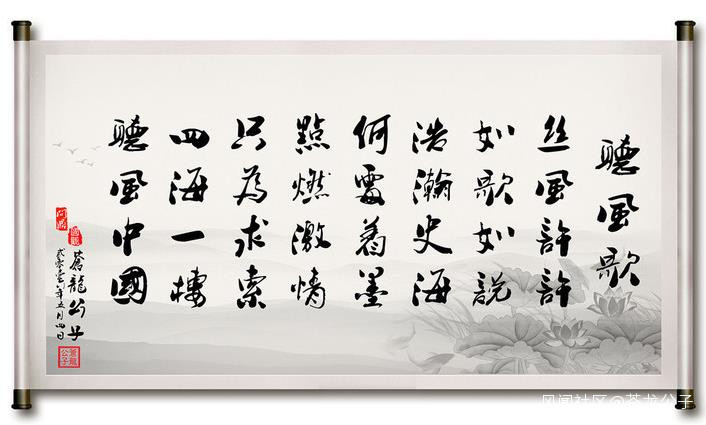 聽風歌
丝風許許
如歌如説
浩瀚史海
何需着墨
點燃激情
只為求索
四海一樓
聽風中國
蒼龍公子
貳零壹八年五月四日
蒼龍公子
风闻社区@苍龙公子